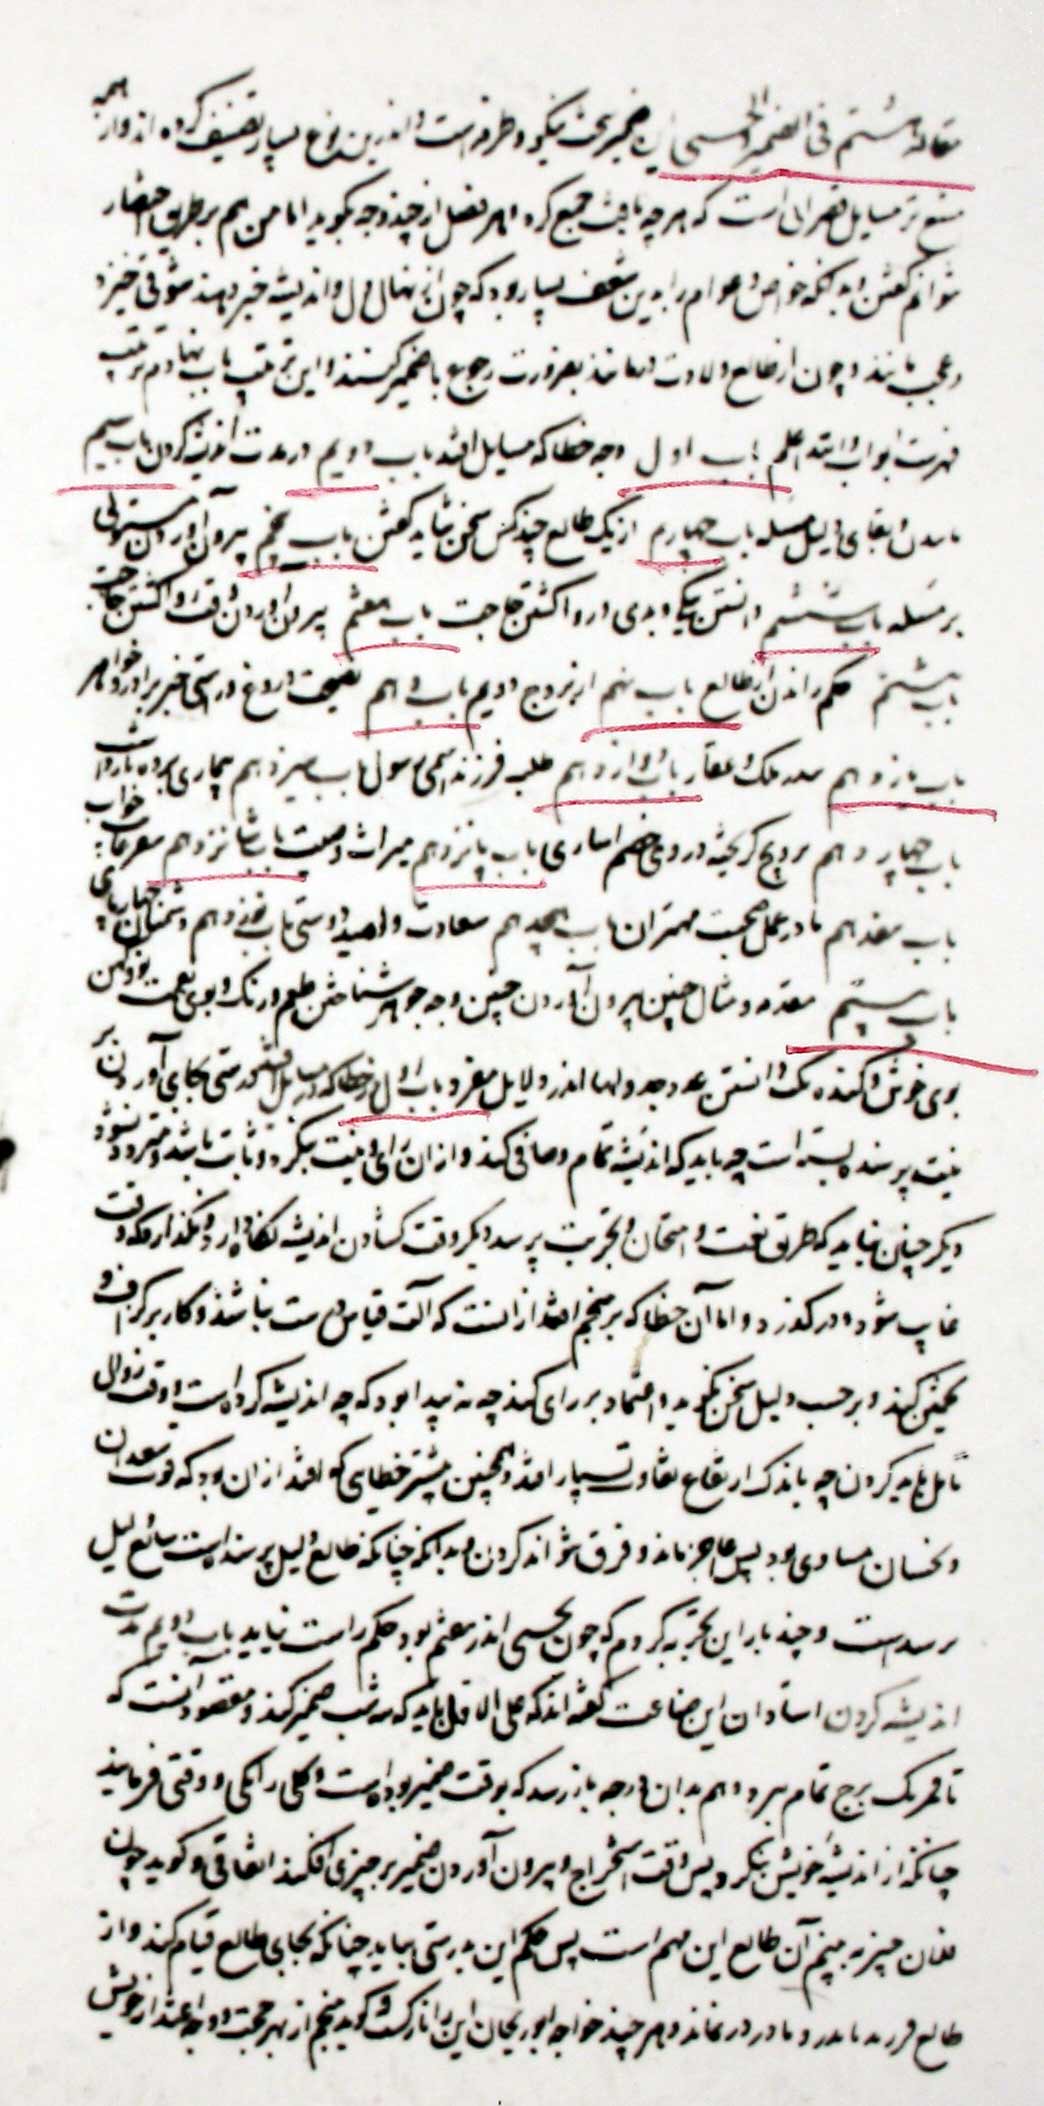 مقاله هشتم فی الضمیر والخبی این ضمیر بحث نیکو و طرفه است و اندرین نوع بسیار تصنیف کرده اند و از همه
متنوع تر مسایل قصرانی است که هر چه یافت جمع کرد و هر فصل از چند وجه بگوید اما من هم بر طریق اختصار
توانم گفتن بدانکه خواص و عوام را بدین شعف بسیار بود که چون از نهال دل و اندیشه خبر دهند شوقی خیزد
و عجب مانند و چون از طالع ولادت درمانند بضرورت رجوع با ضمیر کنند و این ترتیب باب نهادم ترتیب
فهرست ابواب والله اعلم باب اول وجه خطا که مسایل افتد باب دویم در مدت اندیشه کردن باب سیم
ماندن بقای دلیل مسله باب چهارم از یک طالع چند کس سخن شاید گفتن باب پنجم بیرون آوردن مستولی
بر مسله باب ششم دانستن نیکی و بدی و روا گشتن حاجت باب هفتم بیرون آوردن وقت روا گشتن حاجت
باب هشتم حکم راندن از طالع باب نهم از تزویج دویم باب دهم نصیحت دروغ و راستی خبر برادر و خواهر
باب یازدهم پدر ملک و عقار باب دوازدهم طلب فرزند رسول باب سیزدهم بیماری برده
باب چهاردهم تزویج گریخته دزدی خصم باب پانزدهم میراث وصیت باب شانزدهم سفر خواب
باب هفدهم مادر عمل صحبت مهتران باب هجدهم سعادت و امید دوستی باب نوزدهم دشمنان چهارپای
باب بیستم مقدمه و مثال بیرون آوردن وجه جوهر شناختن طعم و رنگ و بوی
بوی خوش و گنده دانستن عدد جدولها اندر دلایل مفرد باب اول خطا که در مسایل افتد درستی بجای آوردن بر
نیت پرسنده بسته است چه باید که اندیشه تمام و صافی کند و از ان رای و نیت بنگردد و ثابت باشد و متردد نشود
دیگر چنان نباید که طریق تعنت و امتحان و تجربت پرسد و دیگر وقت گشادن اندیشه نگاه دارد و نگذارد که وقت
غایب شود و درگذرد و اما آن خطا که بر منجم افتد از انست که آلت قیاس درست نباشد و کار بر گزاف و
تخمین کند و بر حسب دلیل سخن نگوید و اعتماد بر رای کند چه نه پیدا بود که چه اندیشه کرده است و وقت زوال
تامل باید کردن چه باندک ارتفاع تفاوت بسیار افتد و همچنین بیشتر خطای که افتد از ان بود که قوت سعدان
و نحسان مساوی بود پس عاجز ماند و فرق نتواند کردن بدانکه چنانکه طالع دلیل پرسنده است سابع دلیل
است و چند بار این تجربه کردم که چون نحسی اندر هفتم بود حکم راست نیاید باب دویم مدت
اندیشه کردن استادان این صناعت گفته اند که علی الاقل باید که سه شب ضمیر کند و مقصود آنست که
تا قمر یک برج تمام ببرد و هم بدان درجه باز رسد که بوقت ضمیر بوده است و وقتی فرمایند
چنانکه از اندیشه خویش بنگردد پس وقت استخراج و بیرون آوردن ضمیر بر چیزی افکند اتفاقی و گوید چون
فلان چیز به بینم آن طالع این مهم است پس حکم این بدرستی بیاید چنانکه بجای طالع قیام کند و از
طالع فرزند مادر و پدر در نماند و هر چند خواجه ابوریحان این را زرکشت گوید منجم از بهر حجت و وجه اعتذار خویش